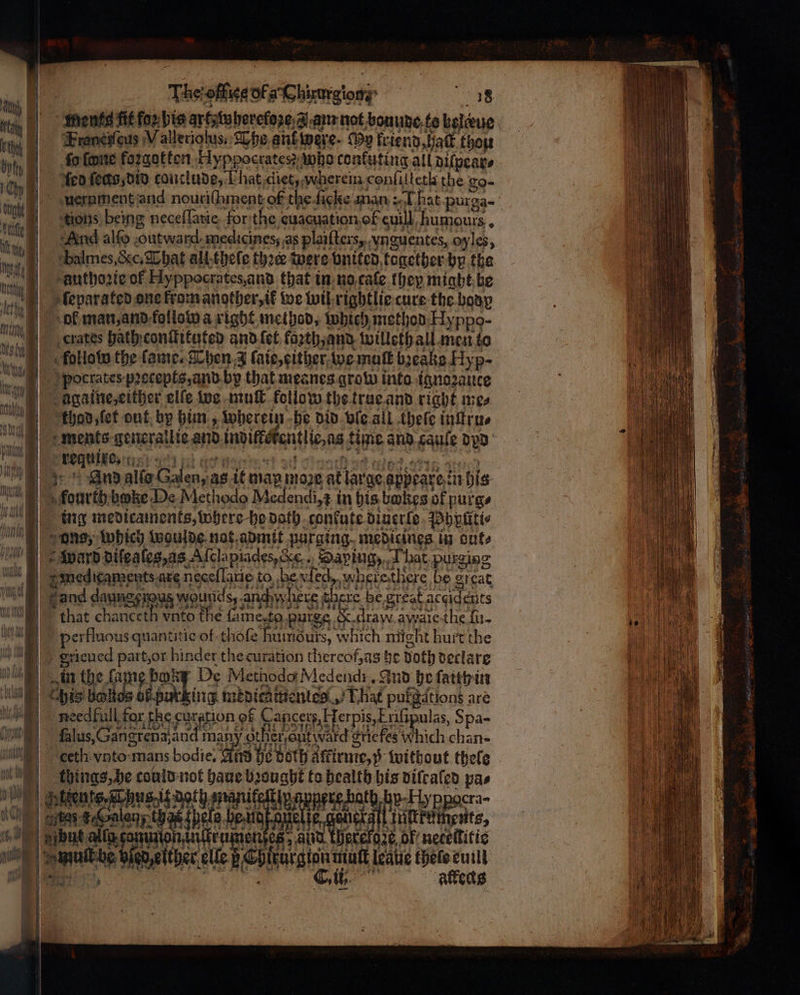 The office of a Chirurgion, 18
ments fit for his art; wherefore, I am not bounde to beleeue
Franciscus Valleriolus. The answere. My friend, hast thou
so sone forgotten Hyppocrates? who confuting all dispeare
sed sects, did conclude, That diet, wherein consisteth the go-
uernment and nourishment of the sicke man: That purga-
tions being necessarie for the euacuation of euill humours,
And also outward medicines, as plaisters, vnguentes, oyles,
balmes, &c. That all these three were vnited together by the
authozie of Hyppocrates, and that in no case they might be
separated one from another, if we wil rightlie cure the body
of man, and follow a right method, which method Hyppo-
crates hath constituted and set forth, and willeth all men to
follow the same. Then I saie, either we must breake Hyp-
pocrates precepts, and by that meanes grow into ignorance
againe, either else we must follow the true and right me-
thod, set out by him, wherein he did vse all these instru-
ments generallie and indifferentlie, as time and cause dyd
require.
And also Galen, as it may more at large appeare in his
fourth boke De Methodo Medendi, & in his bokes of purg-
ing medicaments, where he doth confute diuerse Phisiti-
ons, which woulde not admit purging medicines in out-
ward diseases, as Asclapiades, &c. Saying, That purging
medicaments are necessarie to be vsed, where there be great
and daungerous wounds, and where there be great accidents
that chanceth vnto the same, to purge & draw awaie the su-
perfluous quantitie of those humours, which might hurt the
grieued part, or hinder the curation thereof, as he doth declare
in the same boke De Methodo Medendi. And he saith in
his bokes of purging medicamentes, That purgations are
needfull for the curation of Cancers, Herpis, Erisipulas, Spa-
falus, Gangrena, and many other outward griefes which chan-
ceth vnto mans bodie. And he doth affirme, þ without these
things, he could not haue brought to health his diseased pa-
tients. Thus it doth manifestly appere both by Hyppocra-
tes & Galen, that these be not onelie generall instruments,
but also common instrumentes, and therefore of necessitie
must be vsed, either else þ Chirurgion must leaue these euill
C.ii. affects